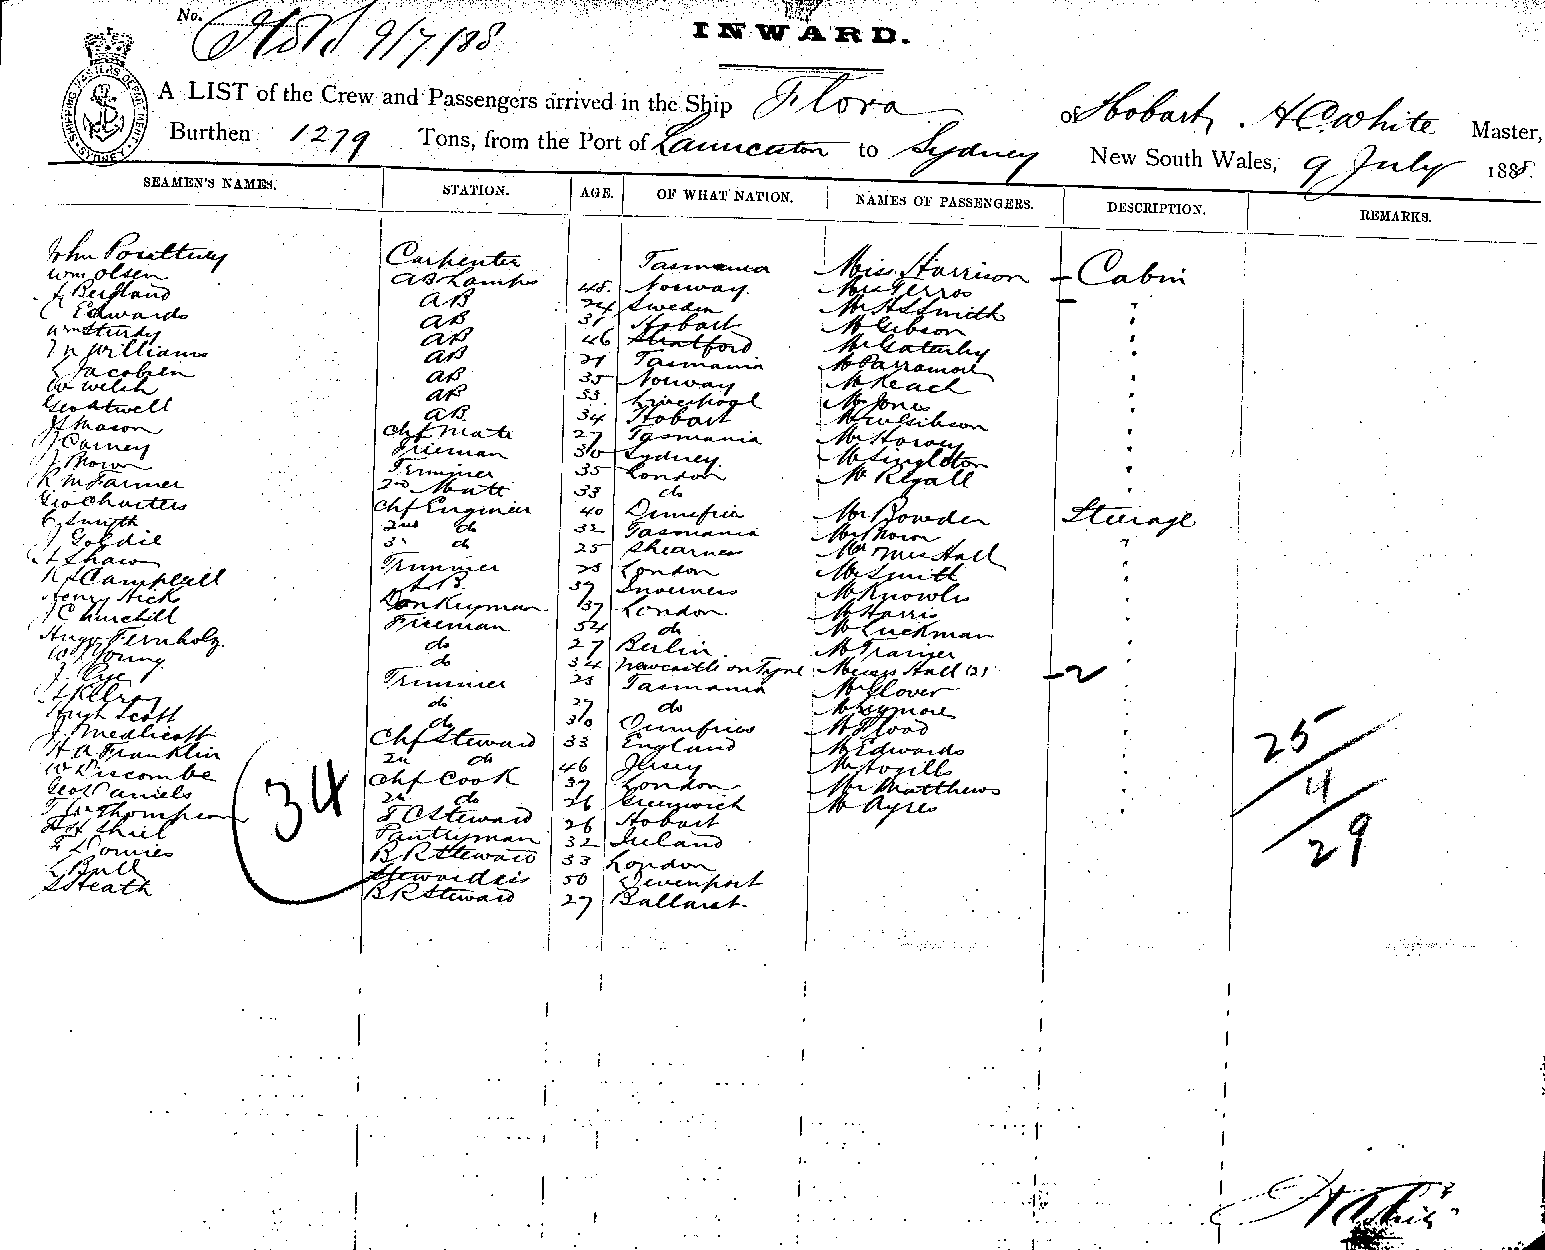 No. 9/7/88
INWARD.
SHIPPING MASTERS DEPARTMENT SYDNEY
A LIST of the Crew and Passengers arrived in the Ship Flora of Hobart, H C White Master,
Burthen 1279 Tons, from the Port of Launceston to Sydney New South Wales, 9 July 1888.
SEAMEN'S NAMES. STATION. AGE. OF WHAT NATION. NAMES OF PASSENGERS. DESCRIPTION. REMARKS.
John Carpenter Tasmania Miss Harrison - Cabin
Wm Olsen AB Lamps 48. Norway. -
J Berglund AB 24 Sweden Mr H S Smith "
C Edwards AB 31 Hobart Mr Gibson "
Wm Sturdy AB 46 Stratford Mr Gatenby "
Williams AB 21 Tasmania Mr Parramore "
Jacobsen AB 35 Norway Mr Keach "
W Welsh AB 33 Liverpool Mr Jones "
Geo Atwell AB 34 Hobart Mr W Gibson "
J H Mason Chf Mate 27 Tasmania Mr Harvey "
J Carney Fireman 30 Sydney Mr Singleton "
J Brown Trimmer 35 London Mr "
R M Farmer 2nd Mate 33 do
Geo Charters Chf Engineer 40 Dumfries Mr Bowden Steerage
C Smith 2nd do 32 Tasmania Mr Brown
J Goldie 3r do 25 Shearness Mr Mrs Hall "
H Shaw Trimmer 25 London Mr Smith "
Campbell A.B. 37 Inverness Mr Knowles "
Henry Hick Donkeyman 37 London Mr Harris "
J Churchill Fireman 54 do Mr Luckman "
Hugo Fernholz do 27 Berlin Mr Trainer "
W Young do 34 Newcastle on Tyne Misses Hall (2) - 2
J Pye Trimmer 25 Tasmania Mr Glover "
Kelroy do 27 do Mr Seymore "
Hugh Scott do 30 Dumfries Mr Flood "
J Medlicott Chf Steward 33 England Mr Edwards "
H A Franklin 2nd do 46 Jersey Mr "
W Discombe Chf Cook 37 London Mr Matthews "
Geo Daniels 2nd do 26 Greenwich Mr Ayres "
Thompson F C Steward 26 Hobart
Shiel Pantryman 32 Ireland
Downies B R Steward 33 London
Bull Stewardess 50 Devenport
S Heath B R Steward 27 Ballarat
34
25
4
29